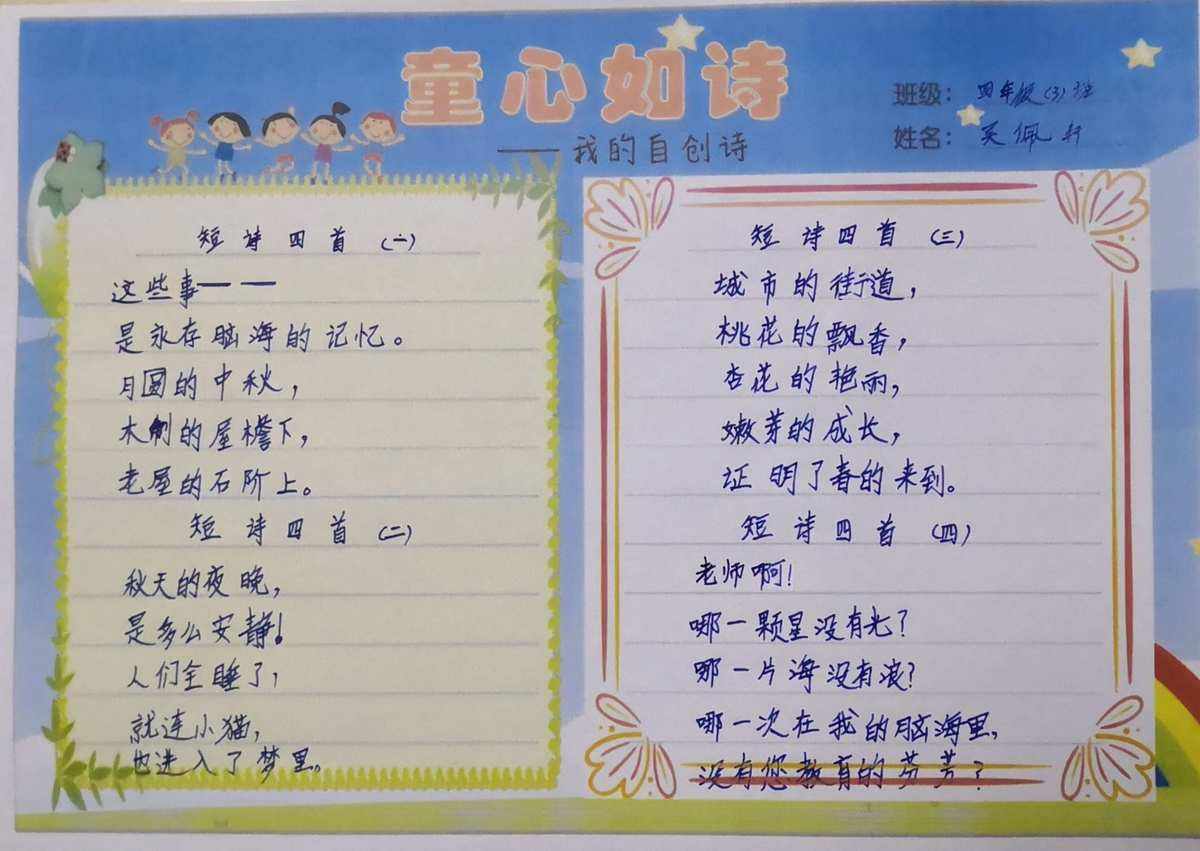 童心如诗
——我的自创诗
班级：四年级(3)班
姓名：吴佩
短诗四首（一）
这些事——
是永存脑海的记忆。
月圆的中秋，
木制的屋檐下，
老屋的石阶上。
短诗四首（二）
秋天的夜晚，
是多么安静！
人们全睡了，
就连小猫，
也进入了梦里。
短诗四首（三）
城市的街道，
桃花的飘香，
杏花的艳丽，
嫩芽的成长，
证明了春的来到。
短诗四首（四）
老师啊！
哪一颗星没有光？
哪一片海没有浪？
哪一次在我的脑海里，
没有您教育的芬芳？